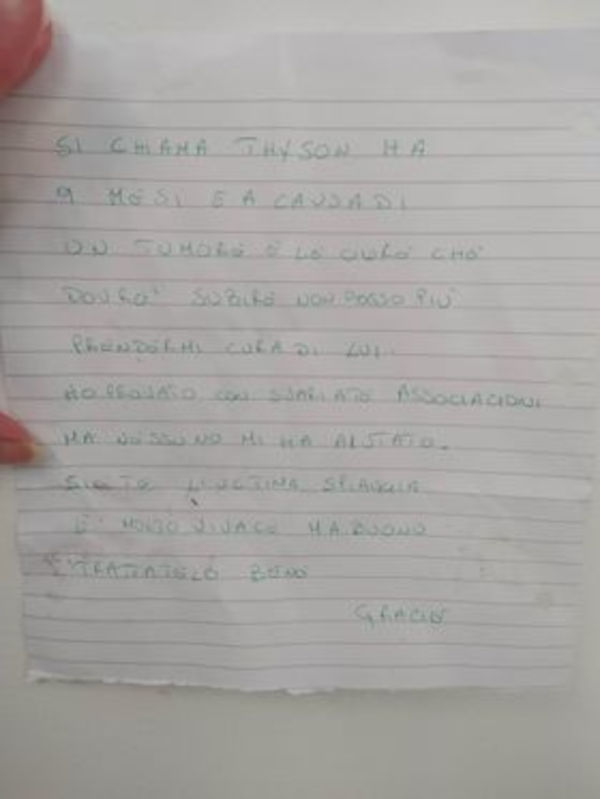 SI CHIAMA THYSON HA
9 MESI E A CAUSA DI
UN TUMORE E LE CURE CHE
DOVRO' SUBIRE NON POSSO PIÚ
PRENDERMI CURA DI LUI.
HO PROVATO CON SVARIATE ASSOCIACIONI
MA NESSUNO MI HA AIUTATO.
SIETE L'ULTIMA SPIAGGIA
E' MOLTO VIVACE MA BUONO
TRATTATELO BENE
GRACIE